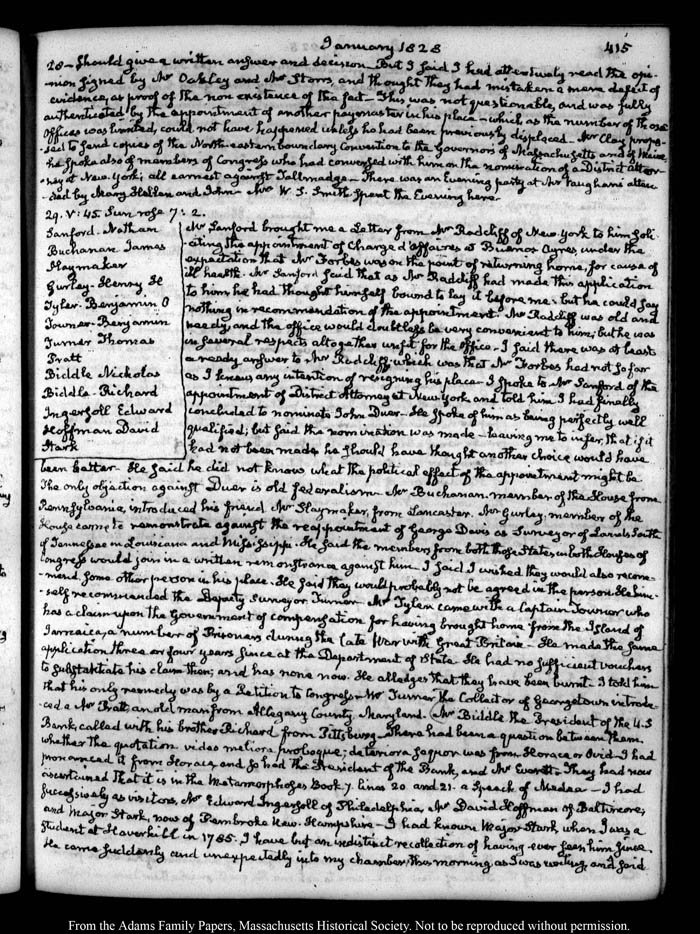 January 1828
415
28 - Should give a written answer and decision - But I said I had attentively read the opi-
-nion signed by Mr Oakley and Mr Storrs, and thought they had mistaken a mere defect of
evidence, as proof of the non existence of the fact - This was not questionable, and was fully
authenticated by the appointment of another paymaster in his place - which as the number of those
Offices was limited, could not have happened unless he had been previously displaced - Mr Clay propo-
-sed to send copies of the North-eastern boundary Convention to the Governors of Massachusetts and of Maine
he spoke also of members of Congress who had conversed with him on the nomination of a District Attor-
-ney at New York; all earnest against Tallmadge - There was an Evening party at Mr Vaughan's atten-
-ded by Mary Hellen and John - Mr W. S. Smith spent the Evening here.
29. V: 45. Sun rose 7: 2.
Sanford. Nathan
Buchanan James
Slaymaker
Gurley. Henry H
Tyler. Benjamin O
Towner. Benjamin
Turner Thomas
Pratt
Biddle Nicholas
Biddle. Richard
Ingersoll Edward
Hoffman David
Stark
Mr Sanford brought me a Letter from Mr Radcliff of New York to him soli-
-citing the appointment of Chargé d'affaires at Buenos Ayres, under the
expectation that Mr Forbes was on the point of returning home, for cause of
ill health. Mr Sanford said that as Mr Radcliff had made this application
to him, he had thought himself bound to lay it before me - but he could say
nothing in recommendation of the appointment. Mr Radcliff was old and
needy, and the office would doubtless be very convenient to him; but he was
in several respects altogether unfit for the Office. I said there was at least
a ready answer to Mr Radcliff; which was that Mr Forbes had not so far
as I knew any intention of resigning his place - I spoke to Mr Sanford of the
appointment of District Attorney at New York, and told him I had finally
concluded to nominate John Duer - He spoke of him as being perfectly well
qualified; but said the nomination was made - leaving me to infer, that if it
had not been made he should have thought another choice would have
been better - He said he did not know what the political effect of the appointment might be
The only objection against Duer is old federalism - Mr Buchanan, member of the House from
Pennsylvania, introduced his friend Mr Slaymaker, from Lancaster. Mr Gurley, member of the
House came to remonstrate against the reappointment of George Davis as Surveyor of Lands South
of Tennessee in Louisiana and Mississippi. He said the members from both those States in both Houses of
Congress would join in a written remonstrance against him. I said I wished they would also recom-
-mend some other person in his place. He said they would probably not be agreed in the person. He him-
-self recommended the Deputy Surveyor Turner - Mr Tyler came with a Captain Towner who
has a claim upon the Government of compensation for having brought home from the Island of
Jamaica, a number of Prisoners during the late War with Great Britain - He made the same
application three or four years since at the Department of State. He had no sufficient vouchers
to substantiate his claim then; and has none now. He alleges that they have been burnt. I told him
that his only remedy was by a Petition to Congress - Mr Turner, the Collector of Georgetown introdu-
-ced a Mr Pratt, an old man from Allegany County, Maryland. Mr Biddle the President of the U.S
Bank, called with his brother Richard from Pittsburg - There had been a question between them
whether the quotation video meliora proboque; deteriora sequor was from Horace or Ovid - I had
pronounced it from Horace, and so had the President of the Bank, and Mr Everett. They had now
ascertained that it is in the Metamorphoses Book 7. lines 20 and 21. a Speech of Medea - I had
successively as visitors, Mr Edward Ingersoll of Philadelphia, Mr David Hoffman of Baltimore,
and Major Stark, now of Pembroke New-Hampshire - I had known Major Stark when I was a
Student at Haverhill in 1785. I have but an indistinct recollection of having ever seen him since.
He came suddenly and unexpectedly into my chamber, this morning as I was writing, and said
From the Adams Family Papers, Massachusetts Historical Society. Not to be reproduced without permission.